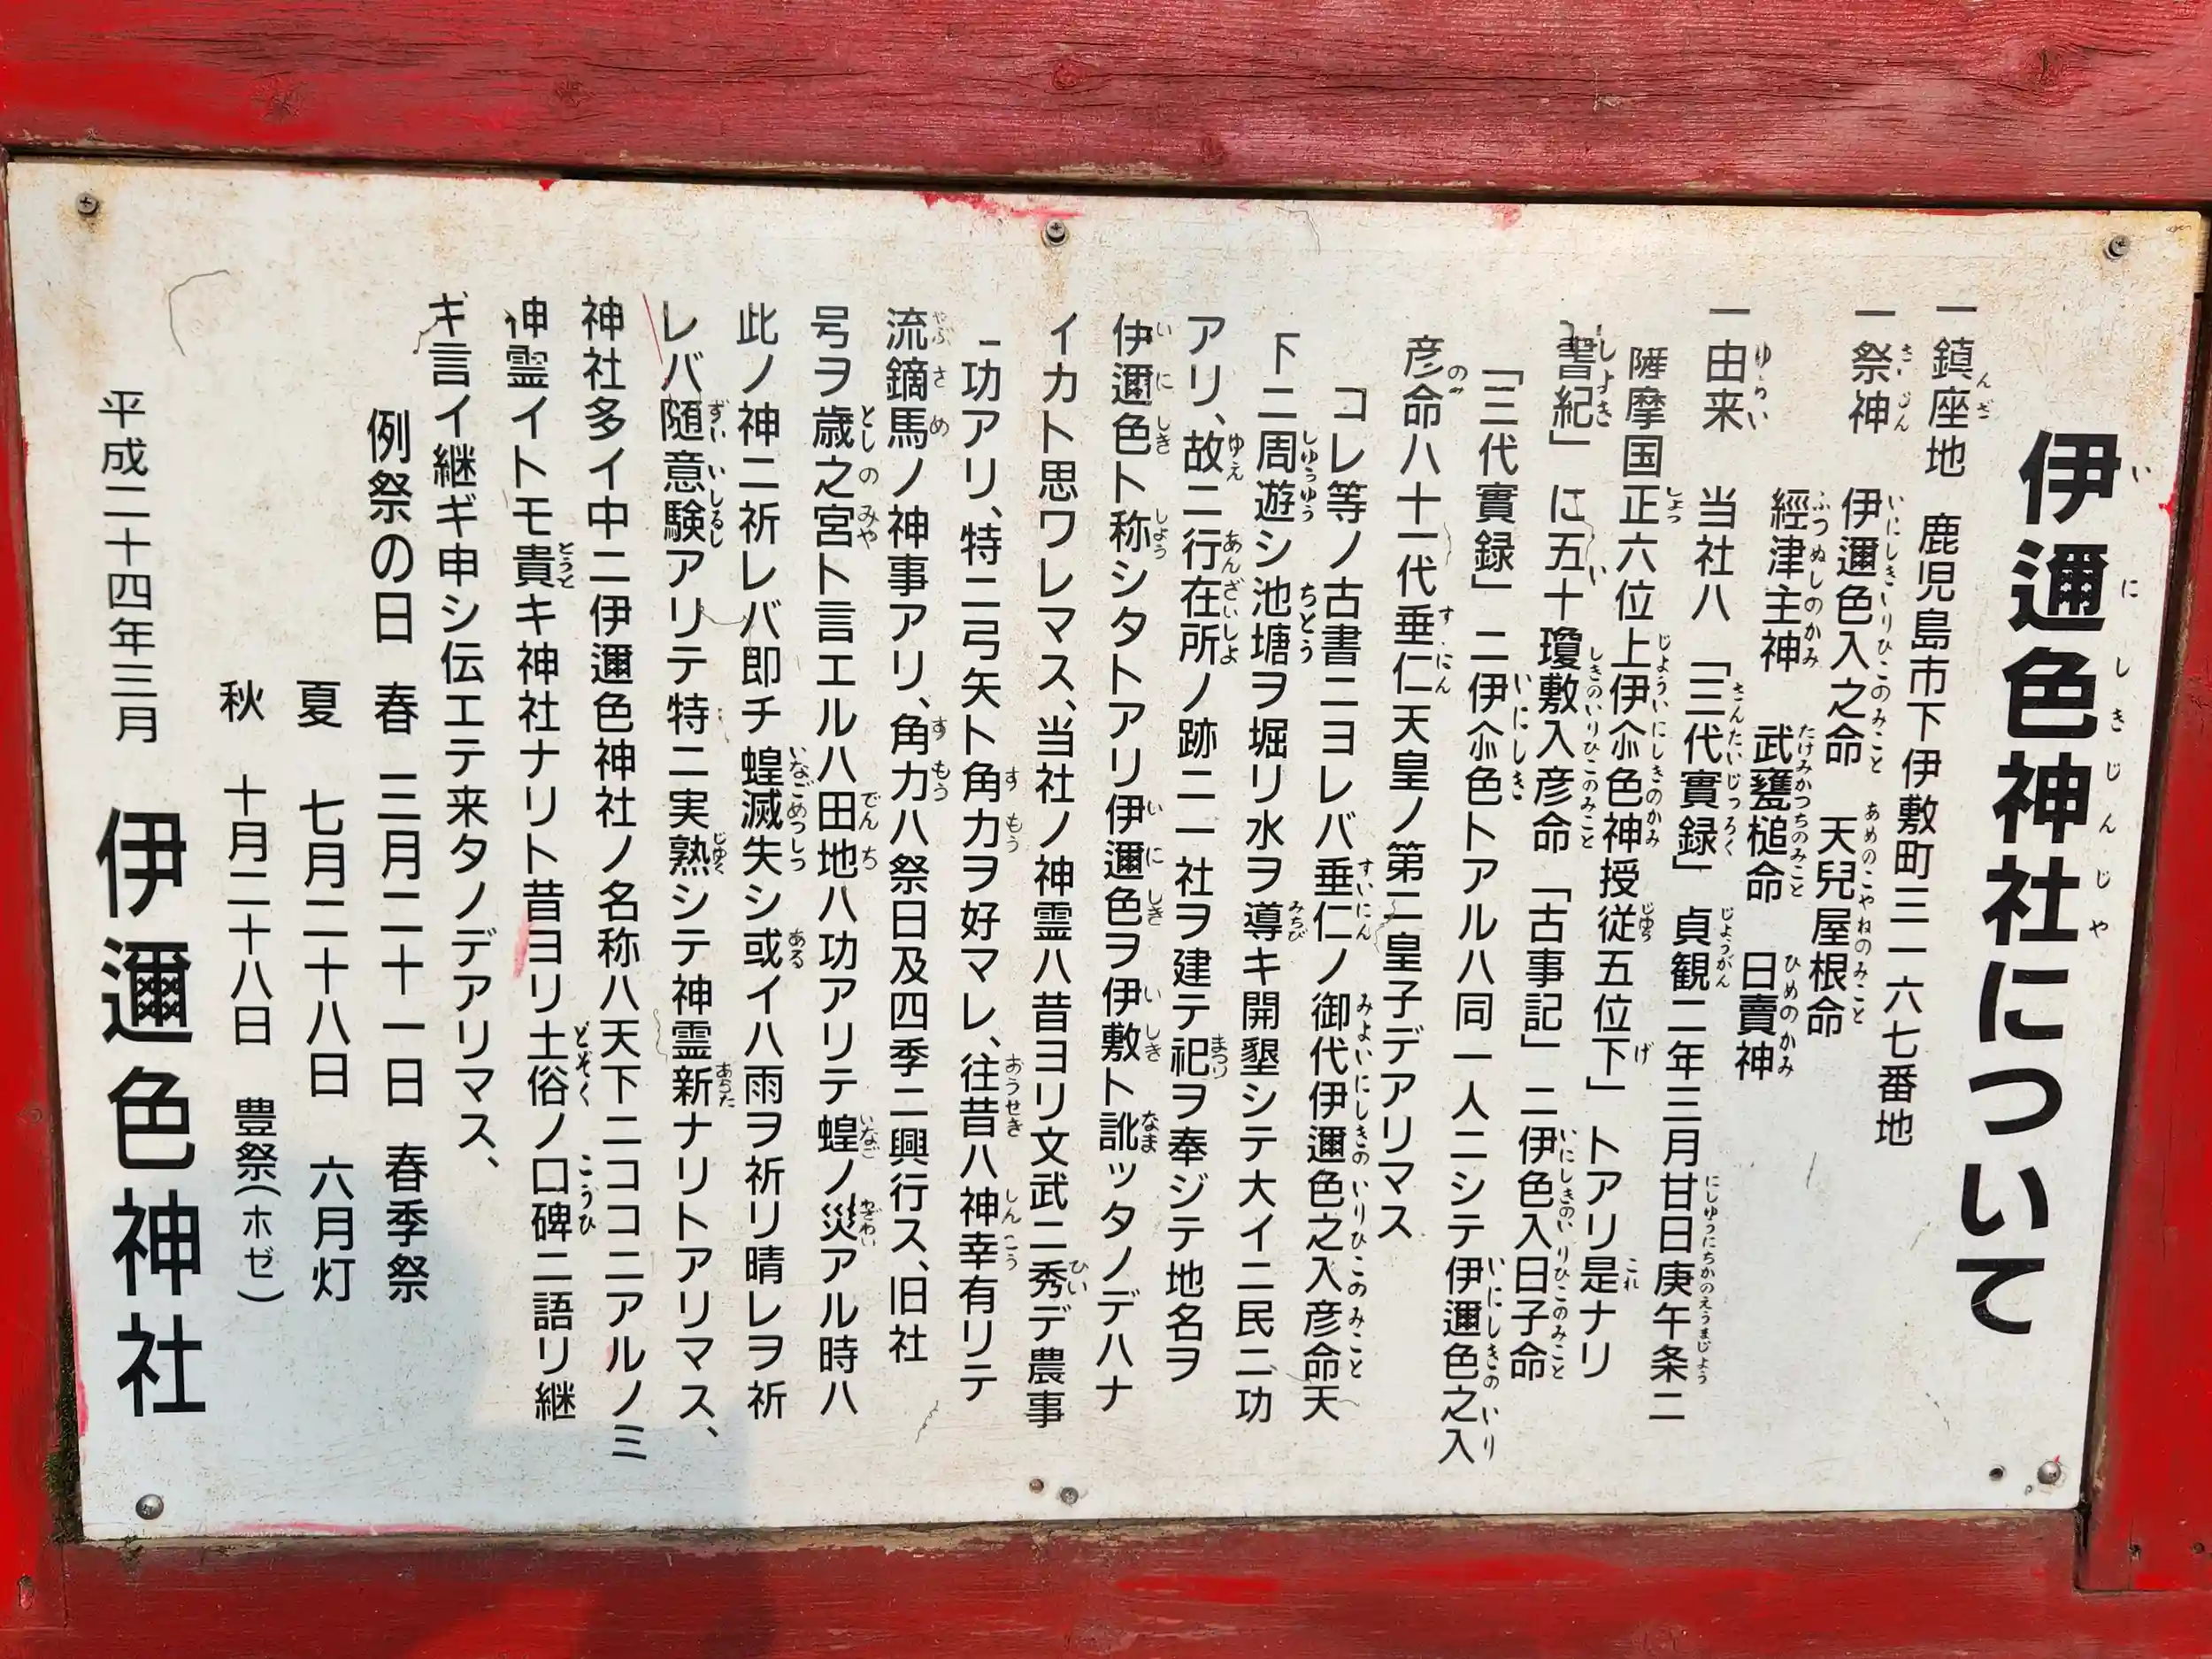 伊邇色神社について
一鎮座地 鹿児島市下伊敷町三一六七番地
一祭神 伊邇色入之命 天兒屋根命
經津主神 武甕槌命 日賣神
一由来 当社ハ「三代實録」貞観二年三月甘日庚午条二
薩摩国正六位上伊尒色神授従五位下」トアリ是ナリ
書紀」に五十瓊敷入彦命「古事記」二伊色入日子命
「三代實録」二伊尒色トアルハ同一人ニシテ伊邇色之入
彦命ハ十一代垂仁天皇ノ第二皇子デアリマス
コレ等ノ古書ニヨレバ垂仁ノ御代伊邇色之入彦命天
下ニ周遊シ池塘ヲ堀リ水ヲ導キ開墾シテ大イニ民ニ功
アリ、故ニ行在所ノ跡ニ一社ヲ建テ祀ヲ奉ジテ地名ヲ
伊邇色ト称シタトアリ伊邇色ヲ伊敷ト訛ッタノデハナ
イカト思ワレマス、当社ノ神霊ハ昔ヨリ文武ニ秀デ農事
ニ功アリ、特ニ弓矢ト角力ヲ好マレ、往昔ハ神幸有リテ
流鏑馬ノ神事アリ、角力ハ祭日及四季ニ興行ス、旧社
号ヲ歳之宮ト言エルハ田地ハ功アリテ蝗ノ災アル時ハ
此ノ神ニ祈レバ即チ蝗滅失シ或イハ雨ヲ祈リ晴レヲ祈
レバ随意験アリテ特ニ実熟シテ神霊新ナリトアリマス、
神社多イ中ニ伊邇色神社ノ名称ハ天下ニココニアルノミ
神霊イトモ貴キ神社ナリト昔ヨリ土俗ノ口碑ニ語リ継
ギ言イ継ギ申シ伝エテ来タノデアリマス、
例祭の日 春 三月二十一日 春季祭
夏 七月二十八日 六月灯
秋 十月二十八日 豊祭(ホゼ)
平成二十四年三月 伊邇色神社